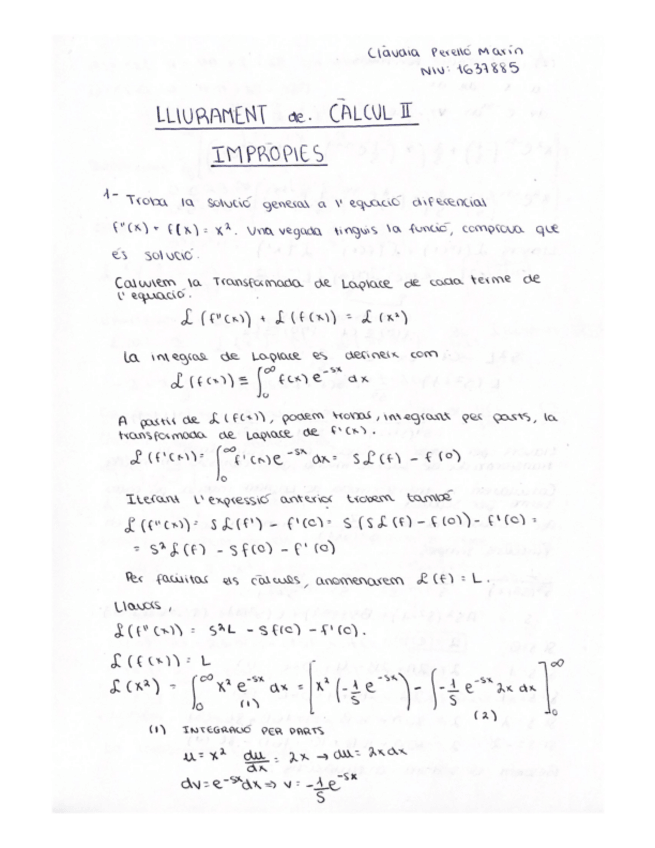 Clàudia Perelló Marin
NIU: 1637885
LLIURAMENT de CÀLCUL II
IMPRÒPIES
1- Troba la solució general a l'equació diferencial
f''(x) + f(x) = x². Una vegada tinguis la funció, comprova que
és solució.
Calculem la Transformada de Laplace de cada terme de
l'equació.
ℒ(f''(x)) + ℒ(f(x)) = ℒ(x²)
La integral de Laplace es defineix com
ℒ(f(x)) ≡ ∫₀^∞ f(x) e^(-sx) dx
A partir de ℒ(f(x)), podem trobar, integrant per parts, la
transformada de Laplace de f'(x).
ℒ(f'(x)) = ∫₀^∞ f'(x) e^(-sx) dx = sℒ(f) - f(0)
Iterant l'expressió anterior trobem també
ℒ(f''(x)) = sℒ(f') - f'(0) = s(sℒ(f) - f(0)) - f'(0) =
= s²ℒ(f) - sf(0) - f'(0)
Per facilitar els càlculs, anomenarem ℒ(f) = L.
Llavors,
ℒ(f''(x)) = s²L - sf(0) - f'(0).
ℒ(f(x)) = L
ℒ(x²) = ∫₀^∞ x² e^(-sx) dx = [x² (-1/s e^(-sx)) - ∫ -1/s e^(-sx) 2x dx]₀^∞
(1) (2)
(1) INTEGRACIÓ PER PARTS
u = x² du/dx = 2x → du = 2x dx
dv = e^(-sx) dx ⇒ v = -1/s e^(-sx)